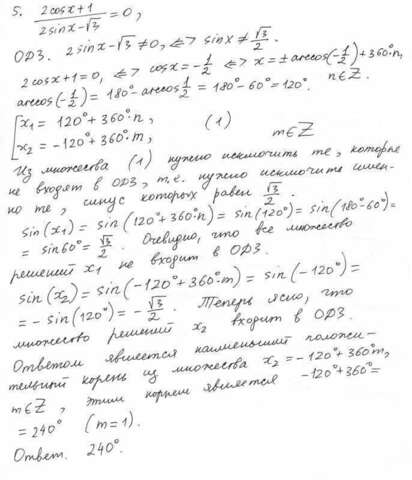 5. (2cosx+1)/(2sinx-√3) = 0,
ОДЗ. 2sinx-√3 ≠ 0, <=> sinx ≠ √3/2.
2cosx+1=0, <=> cosx = -1/2 <=> x = ± arccos(-1/2)+360°n,
arccos(-1/2) = 180° - arccos 1/2 = 180° - 60° = 120°. n∈Z.
[x₁ = 120° + 360°·n, (1)
[x₂ = -120° + 360°·m, m∈Z
Из множества (1) нужно исключить те, которые
не входят в ОДЗ, т.е. нужно исключить имен-
но те, синус которых равен √3/2.
sin(x₁) = sin(120°+360°n) = sin(120°) = sin(180°-60°) =
= sin60° = √3/2. Очевидно, что все множество
решений x₁ не входит в ОДЗ.
sin(x₂) = sin(-120°+360°·m) = sin(-120°) =
= -sin(120°) = -√3/2. Теперь ясно, что
множество решений x₂ входит в ОДЗ.
Ответом является наименьший положи-
тельный корень из множества x₂ = -120°+360°m,
m∈Z, этим корнем является -120°+360° =
= 240° (m=1).
Ответ. 240°.